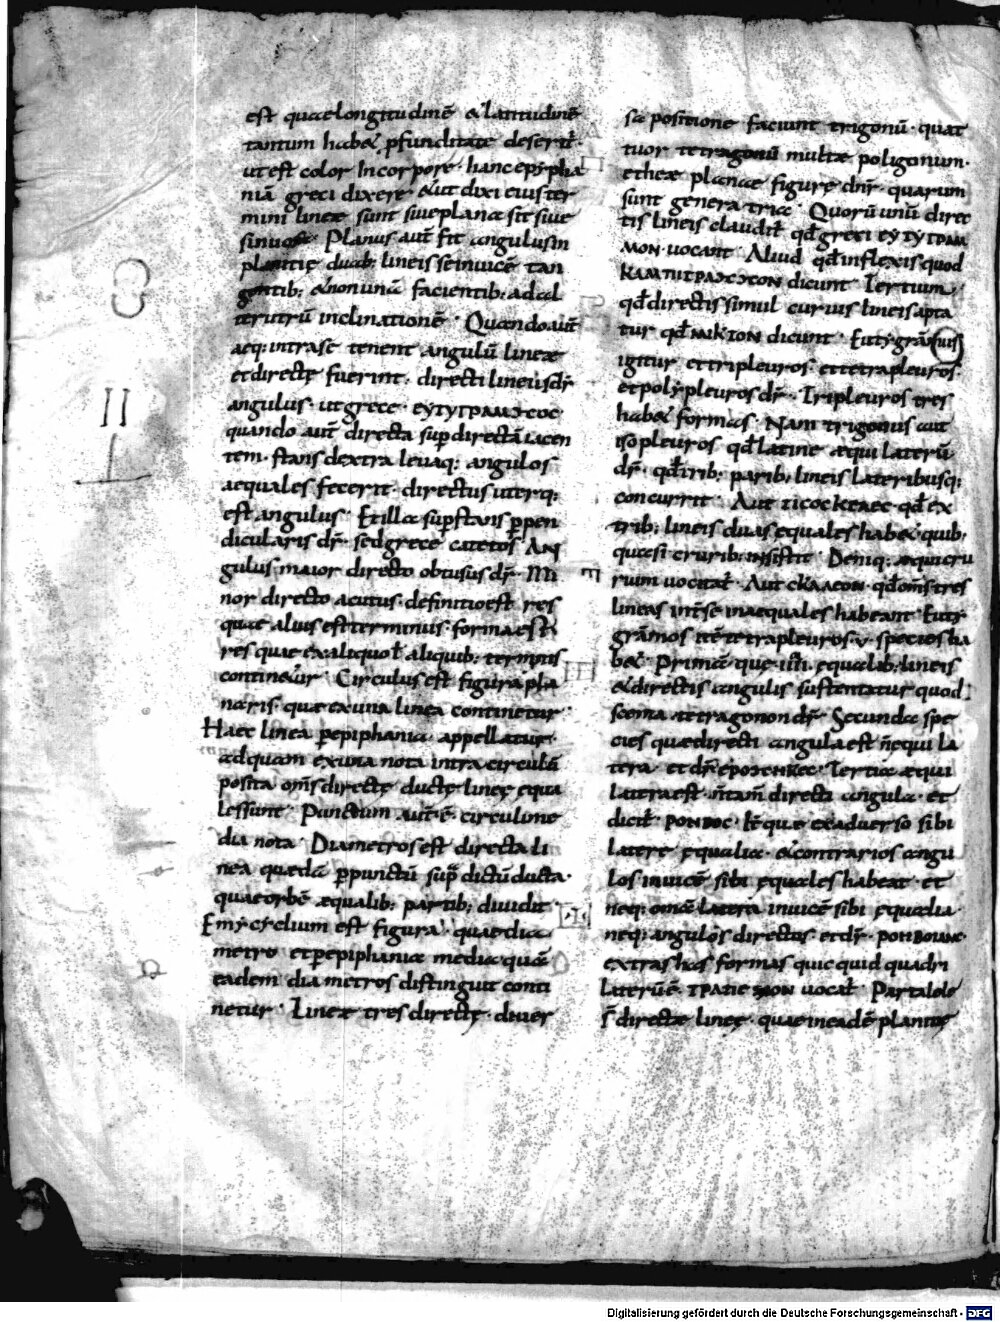 est quae longitudinē & latitudinē
tantum habet pfunditate deserit̄
ut est color In corpore · hanc epypha
niā greci dixere & ut dixi eius ter
mini lineæ sunt sive plana sit sive
sinuosa · Planus aut̄ fit angulus in
planitie duab; lineis se invicē tan
gentib; & non unā facientib; ad al
terutrū inclinationē · Quando aut̄
aeq; intra se tenent angulū lineæ
et directę fuerint · directilineus dr̄
angulus · ut grece · ЄΥΤΥΓΡΑΜ
quando aut̄ directa sup directā iacen
tem · stans dextra levaq; angulos
aequales fecerit · directus uterq;
est angulus · Et illa sup stans ppen
dicularis dr̄ · sed grece catetos AN
gulus maior directo obtusus dr̄ · Mi
nor directo acutus · definitio est res
quae alius est terminus · forma est
res quae ex aliquot̄ aliquib; terminis
continetur · Circulus est figura pla
naris · quæ ex una linea continetur ·
Haec linea pepiphania appellatur ·
ad quam ex una nota intra circulū
posita om̄s directę ductę lineę equa
les sunt · Punctum aut̄ · ē · circuli me
dia nota · Diametros est directa li
nea quædā p punctū sup dictū ducta ·
quae orbē æqualib; partib; dividit
Emycyclium est figura · quae dia
metro et pepiphania media quā
eadem diametros distinguit conti
netur · Lineæ tres directę · diver
sæ positione faciunt trigonū · quat
tuor tetragonū multæ poligonum ·
et heæ planæ figure dnr̄ · quarum
sunt genera tria · Quorū unū direc
tis lineis claudit̄ qđ greci ЄΥΤΥΓΡΑΜ
ΜΟΝ · vocant · Aliud qđ inflexis quod
dicunt · Tertium
qđ directis simul curvis lineis apta
tur qđ ΜΙΚΤΟΝ dicunt · Eutygrāmis
igitur et tripleuros · et tetrapleuros ·
et polypleuros dr̄ · Tripleuros tres
habet formas · Nam trigonus aut
isopleuros qđ latine æqui laterū
dr̄ · qđ trib; parib; lineis lateribusq;
concurrit · Aut qđ ex
trib; lineis duas equales habet quib;
quasi cruribus insistit · Deniq; æquicru
rium vocitat̄ · Aut qđ om̄s tres
lineas int̄ se inaequales habeant · Euty
grāmos itē tetrapleuros · v · species ha
bet · Prima que · iiii · equalib; lineis
& directis angulis sustentatur quod
scema tetragonon dr̄ · Secunda spe
cies quæ directi angula est n̄ equi la
tera et dr̄ · Tertia æqui
latera est · n̄ tam̄ directi angula · et
dicit̄ · It̄ quæ ex adverso sibi
latere equalia · & contrarios angu
los invicē sibi equales habeat · et
neq; omā latera invicē sibi equalia ·
neq; angulos directos · et dr̄ ·
extra has formas quicquid quadri
laterū ē · vocat̄ · Paralele
s̄ directæ lineę · quae in eadē planitie